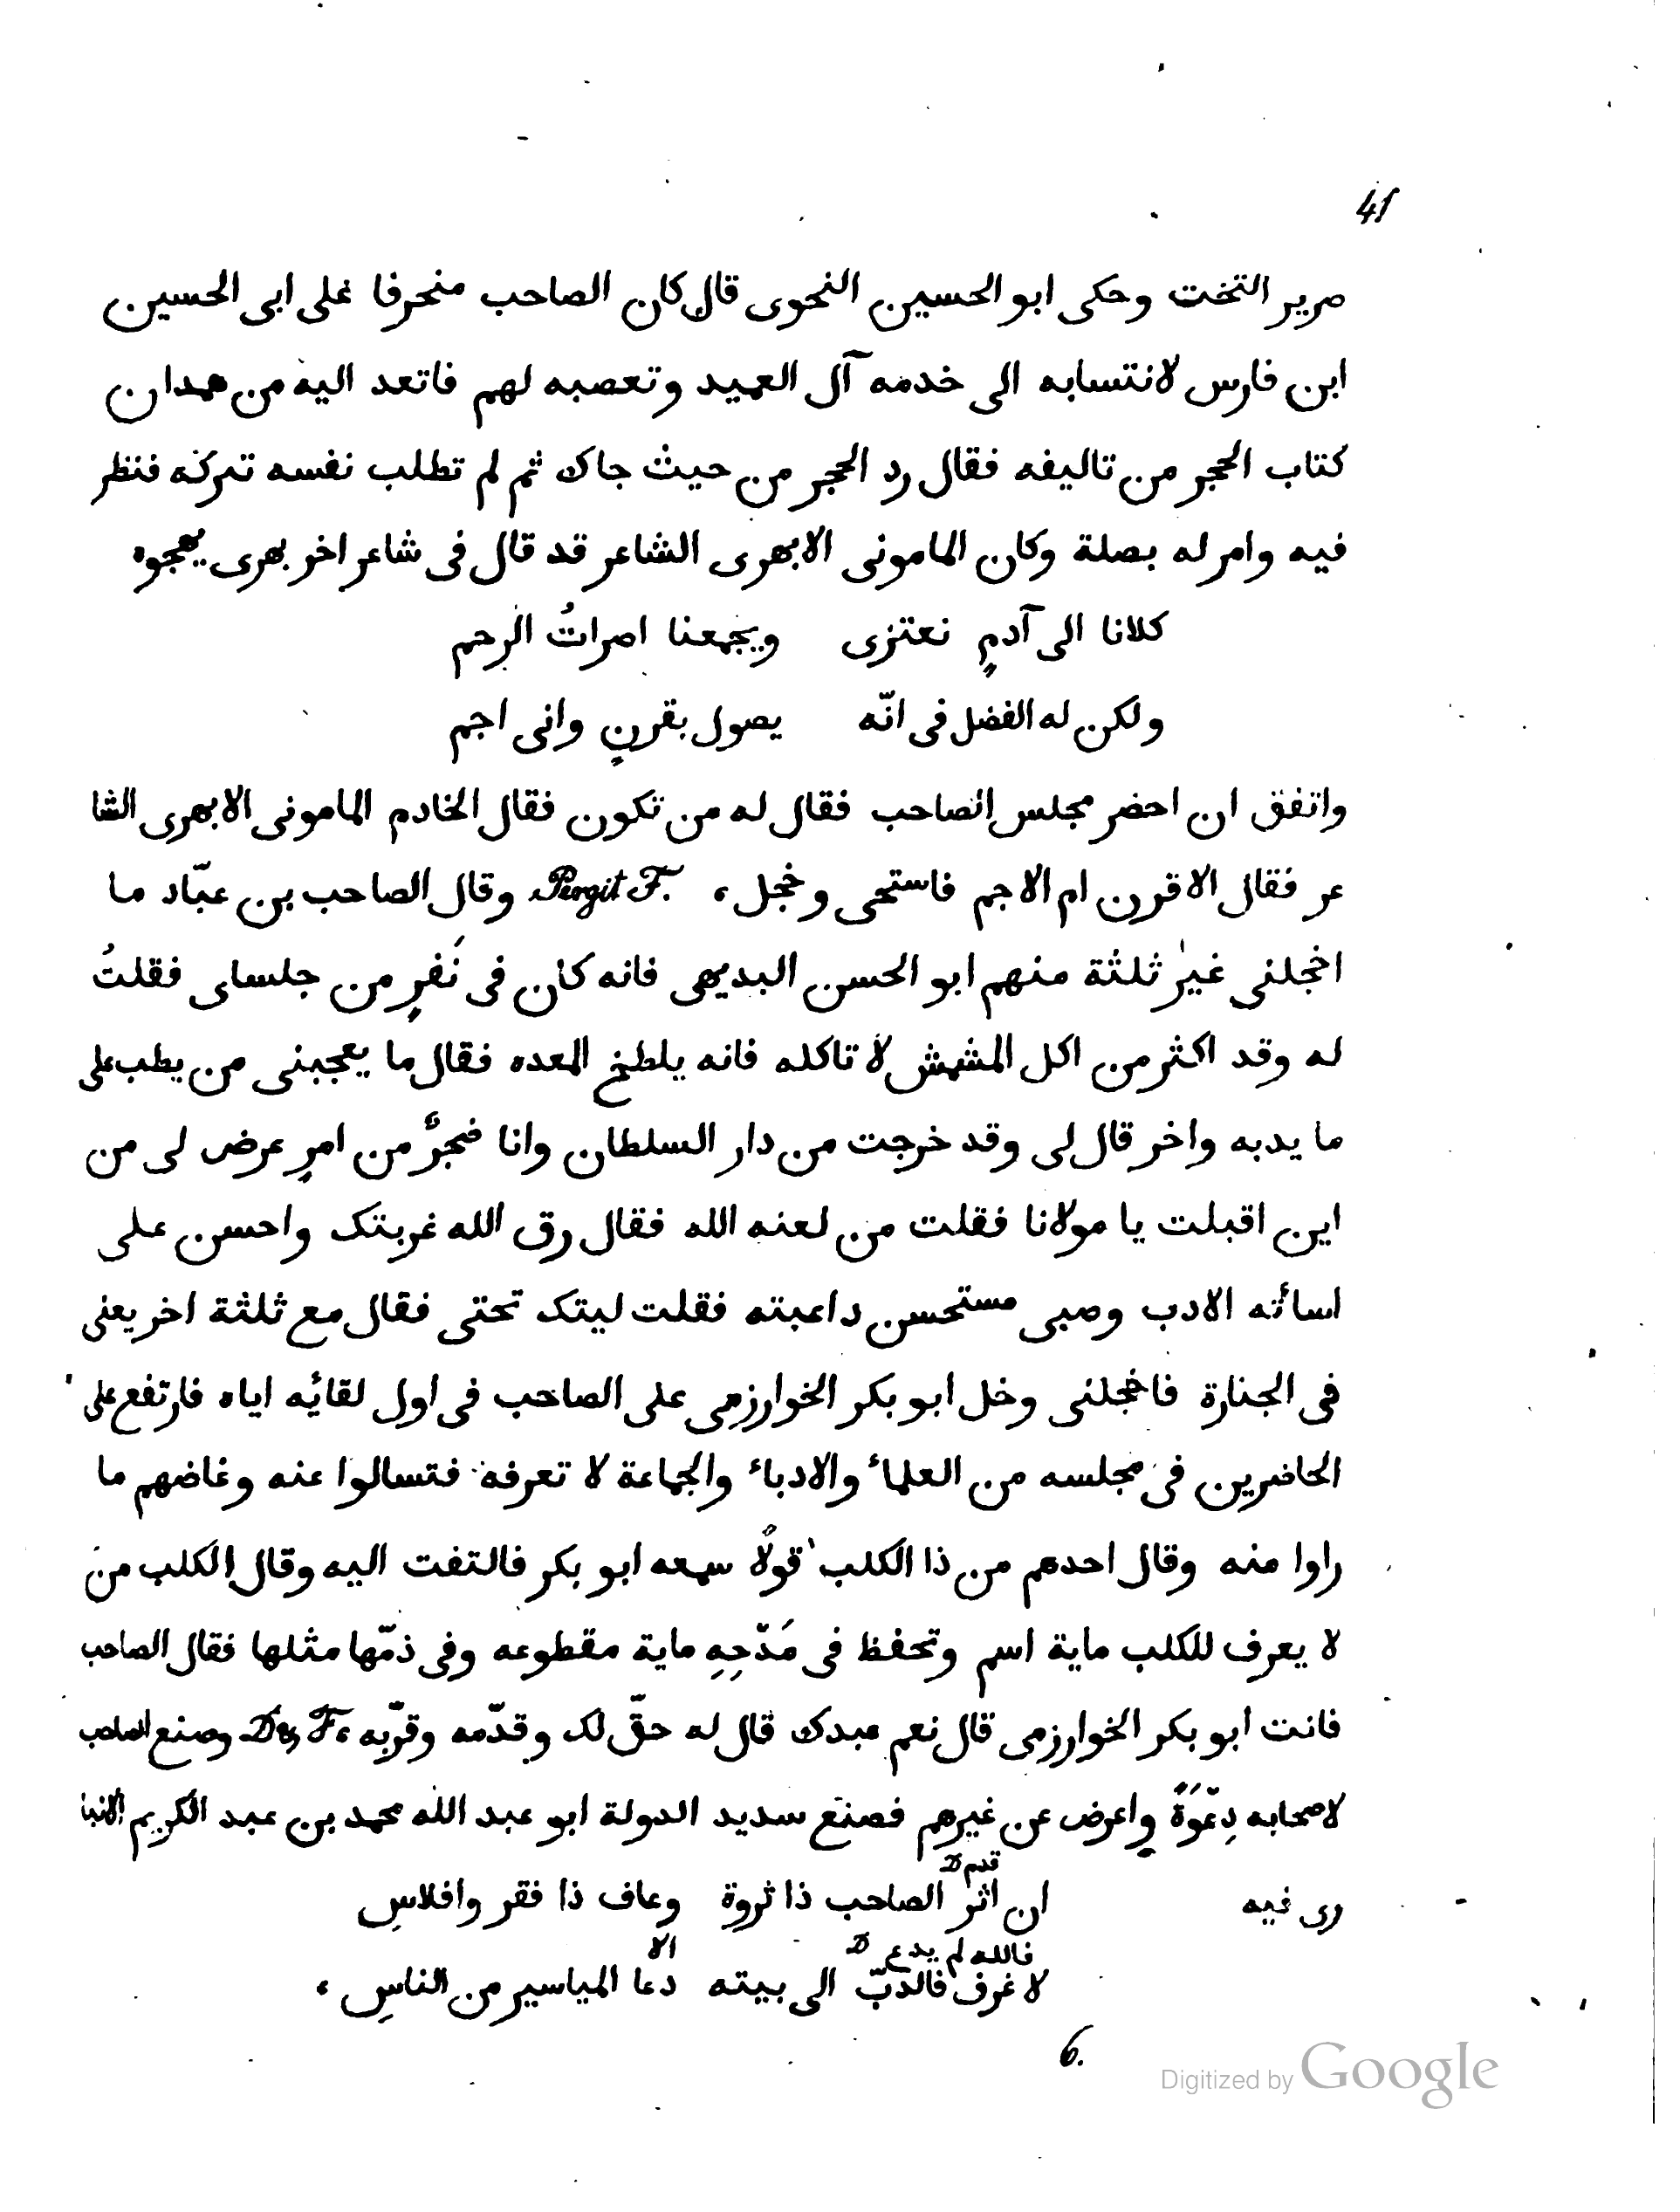 41
صرير التخت وحكى ابو الحسين النحوى قال كان الصاحب منحرفا غلى ابى الحسين
ابن فارس لانتسابه الى خدمه آل العميد وتعصبه لهم فاتعد اليه من همدان
كتاب الحجر من تاليفه فقال رد الحجر من حيث جاك ثم لم تطلب نفسه تتركه فنظر
فيه وامر له بصلة وكان المامونى الابهرى الشاعر قد قال فى شاعر اخر بهرى يهجوه
كلانا الى آدمٍ نعتزى ويجمعنا اصراتُ الرحم
ولكن له الفضل فى انّه يصول بقرنٍ وانى اجم
واتفق ان احضر مجلس الصاحب فقال له من تكون فقال الخادم المامونى الابهرى الشا
عر فقال الاقرن ام الاجم فاستحى وخجل، Pergit F. وقال الصاحب بن عبّاد ما
اخجلنى غير ثلثة منهم ابو الحسن البديهى فانه كان فى نَفرٍ من جلساى فقلتُ
له وقد اكثر من اكل المشمش لا تاكله فانه يلطخ المعده فقال ما يعجبنى من يطب على
ما يدبه واخر قال لى وقد خرجت من دار السلطان وانا ضجرٌ من امرٍ عرض لى من
اين اقبلت يا مولانا فقلت من لعنه الله فقال رق الله غربتك واحسن على
اسأته الادب وصبى مستحسن داعبته فقلت ليتك تحتى فقال مع ثلثة اخر يعنى
فى الجنازة فاخجلنى وخل ابو بكر الخوارزمى على الصاحب فى اول لقائه اياه فارتفع على
الحاضرين فى مجلسه من العلماء والادباء والجماعة لا تعرفه فتسالوا عنه وغاضهم ما
راوا منه وقال احدهم من ذا الكلب قولاً سمعه ابو بكر فالتفت اليه وقال الكلب من
لا يعرف للكلب ماية اسم وتحفظ فى مَدْحِهِ ماية مقطوعه وفى ذمّها مثلها فقال الصاحب
فانت ابو بكر الخوارزمى قال نعم عبدك قال له حقّ لك وقدّمه وقرّبه وصنع الصاحب
لاصحابه دِعْوَةً واعرض عن غيرهم فصنع سديد الدولة ابو عبد الله محمد بن عبد الكريم الانبا
قدم D
رى فيه ان اثر الصاحب ذا ثروة وعاف ذا فقر وافلاسِ
فالله لم يدع D الا
لا غرف فالدبّ الى بيته دعا المياسير من الناسِ،
6.
Digitized by Google